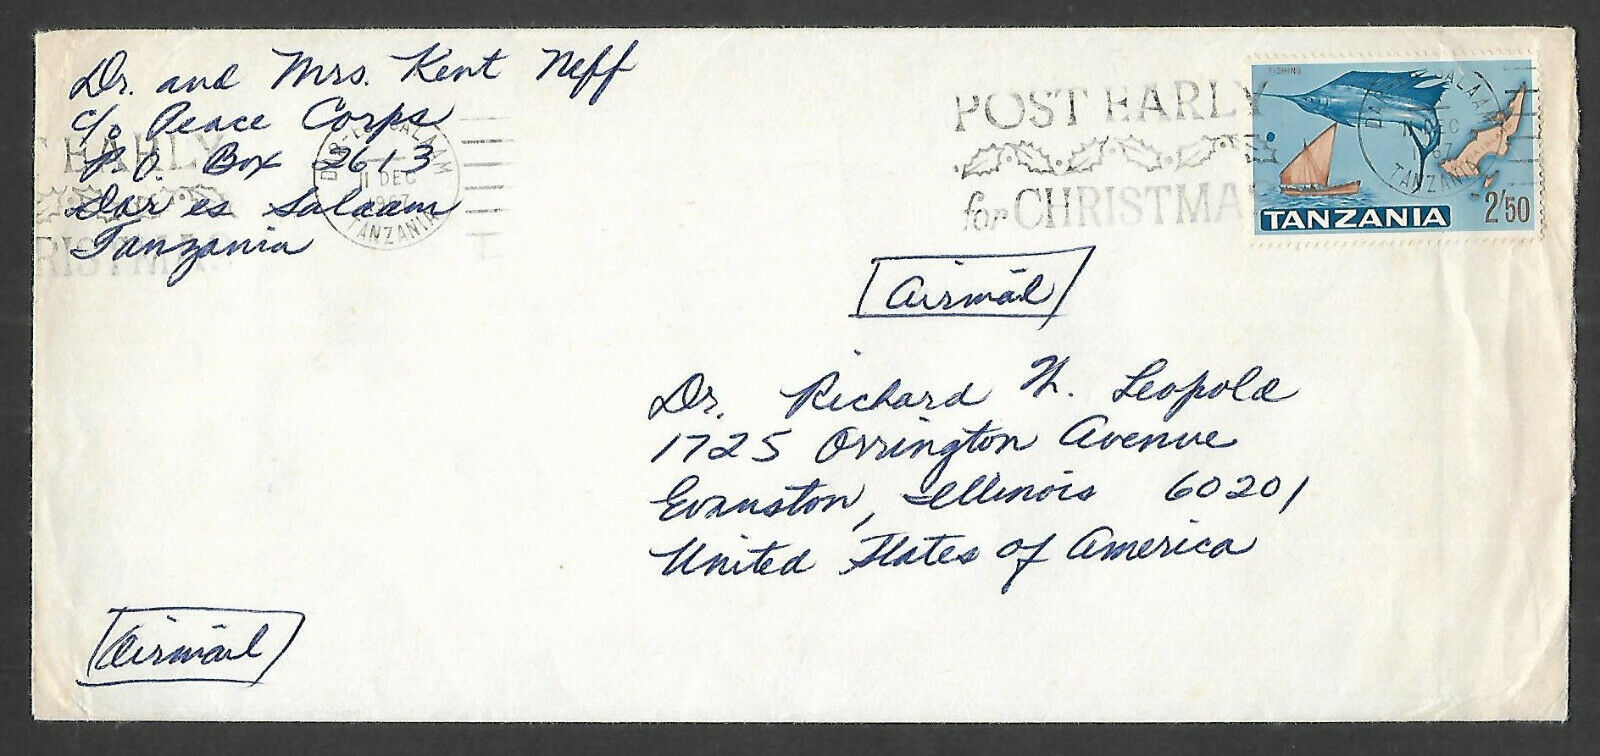 Dr. and Mrs. Kent Neff
c/o Peace Corps
P.O. Box 2613
Dar es Salaam
Tanzania
EARLY
DAR ES SALAAM
11 DEC
1967
TANZANIA
POST EARLY
for CHRISTMA
FISHING
SALAAM
11 DEC
67
TANZANIA
TANZANIA
2/50
Airmail
Dr. Richard W. Leopold
1725 Orrington Avenue
Evanston, Illinois 60201
United States of America
Airmail